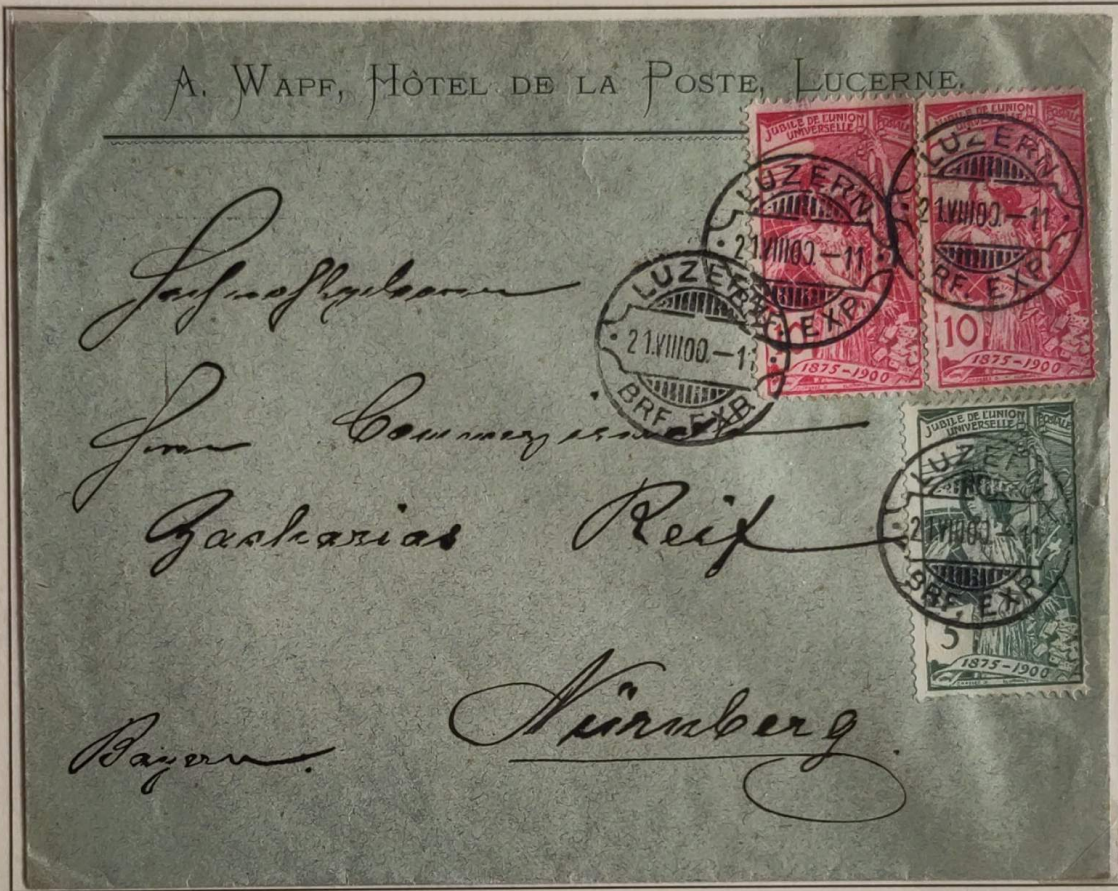 A. WAPF, HÔTEL DE LA POSTE, LUCERNE.
JUBILÉ DE L'UNION POSTALE
UNIVERSELLE
1875–1900
JUBILÉ DE L'UNION POSTALE
UNIVERSELLE
10
1875–1900
LUZERN
21.VIII00.–11
BRF. EXP.
LUZERN
21.VIII00.–11
BRF. EXP.
LUZERN
21.VIII00.–11
BRF. EXP.
JUBILÉ DE L'UNION POSTALE
UNIVERSELLE
5
1875–1900
LUZERN
21.VIII00.–11
BRF. EXP.
Hochwohlgeboren
Herrn Commerzienrat
Zacharias Reif
Nürnberg.
Bayern.